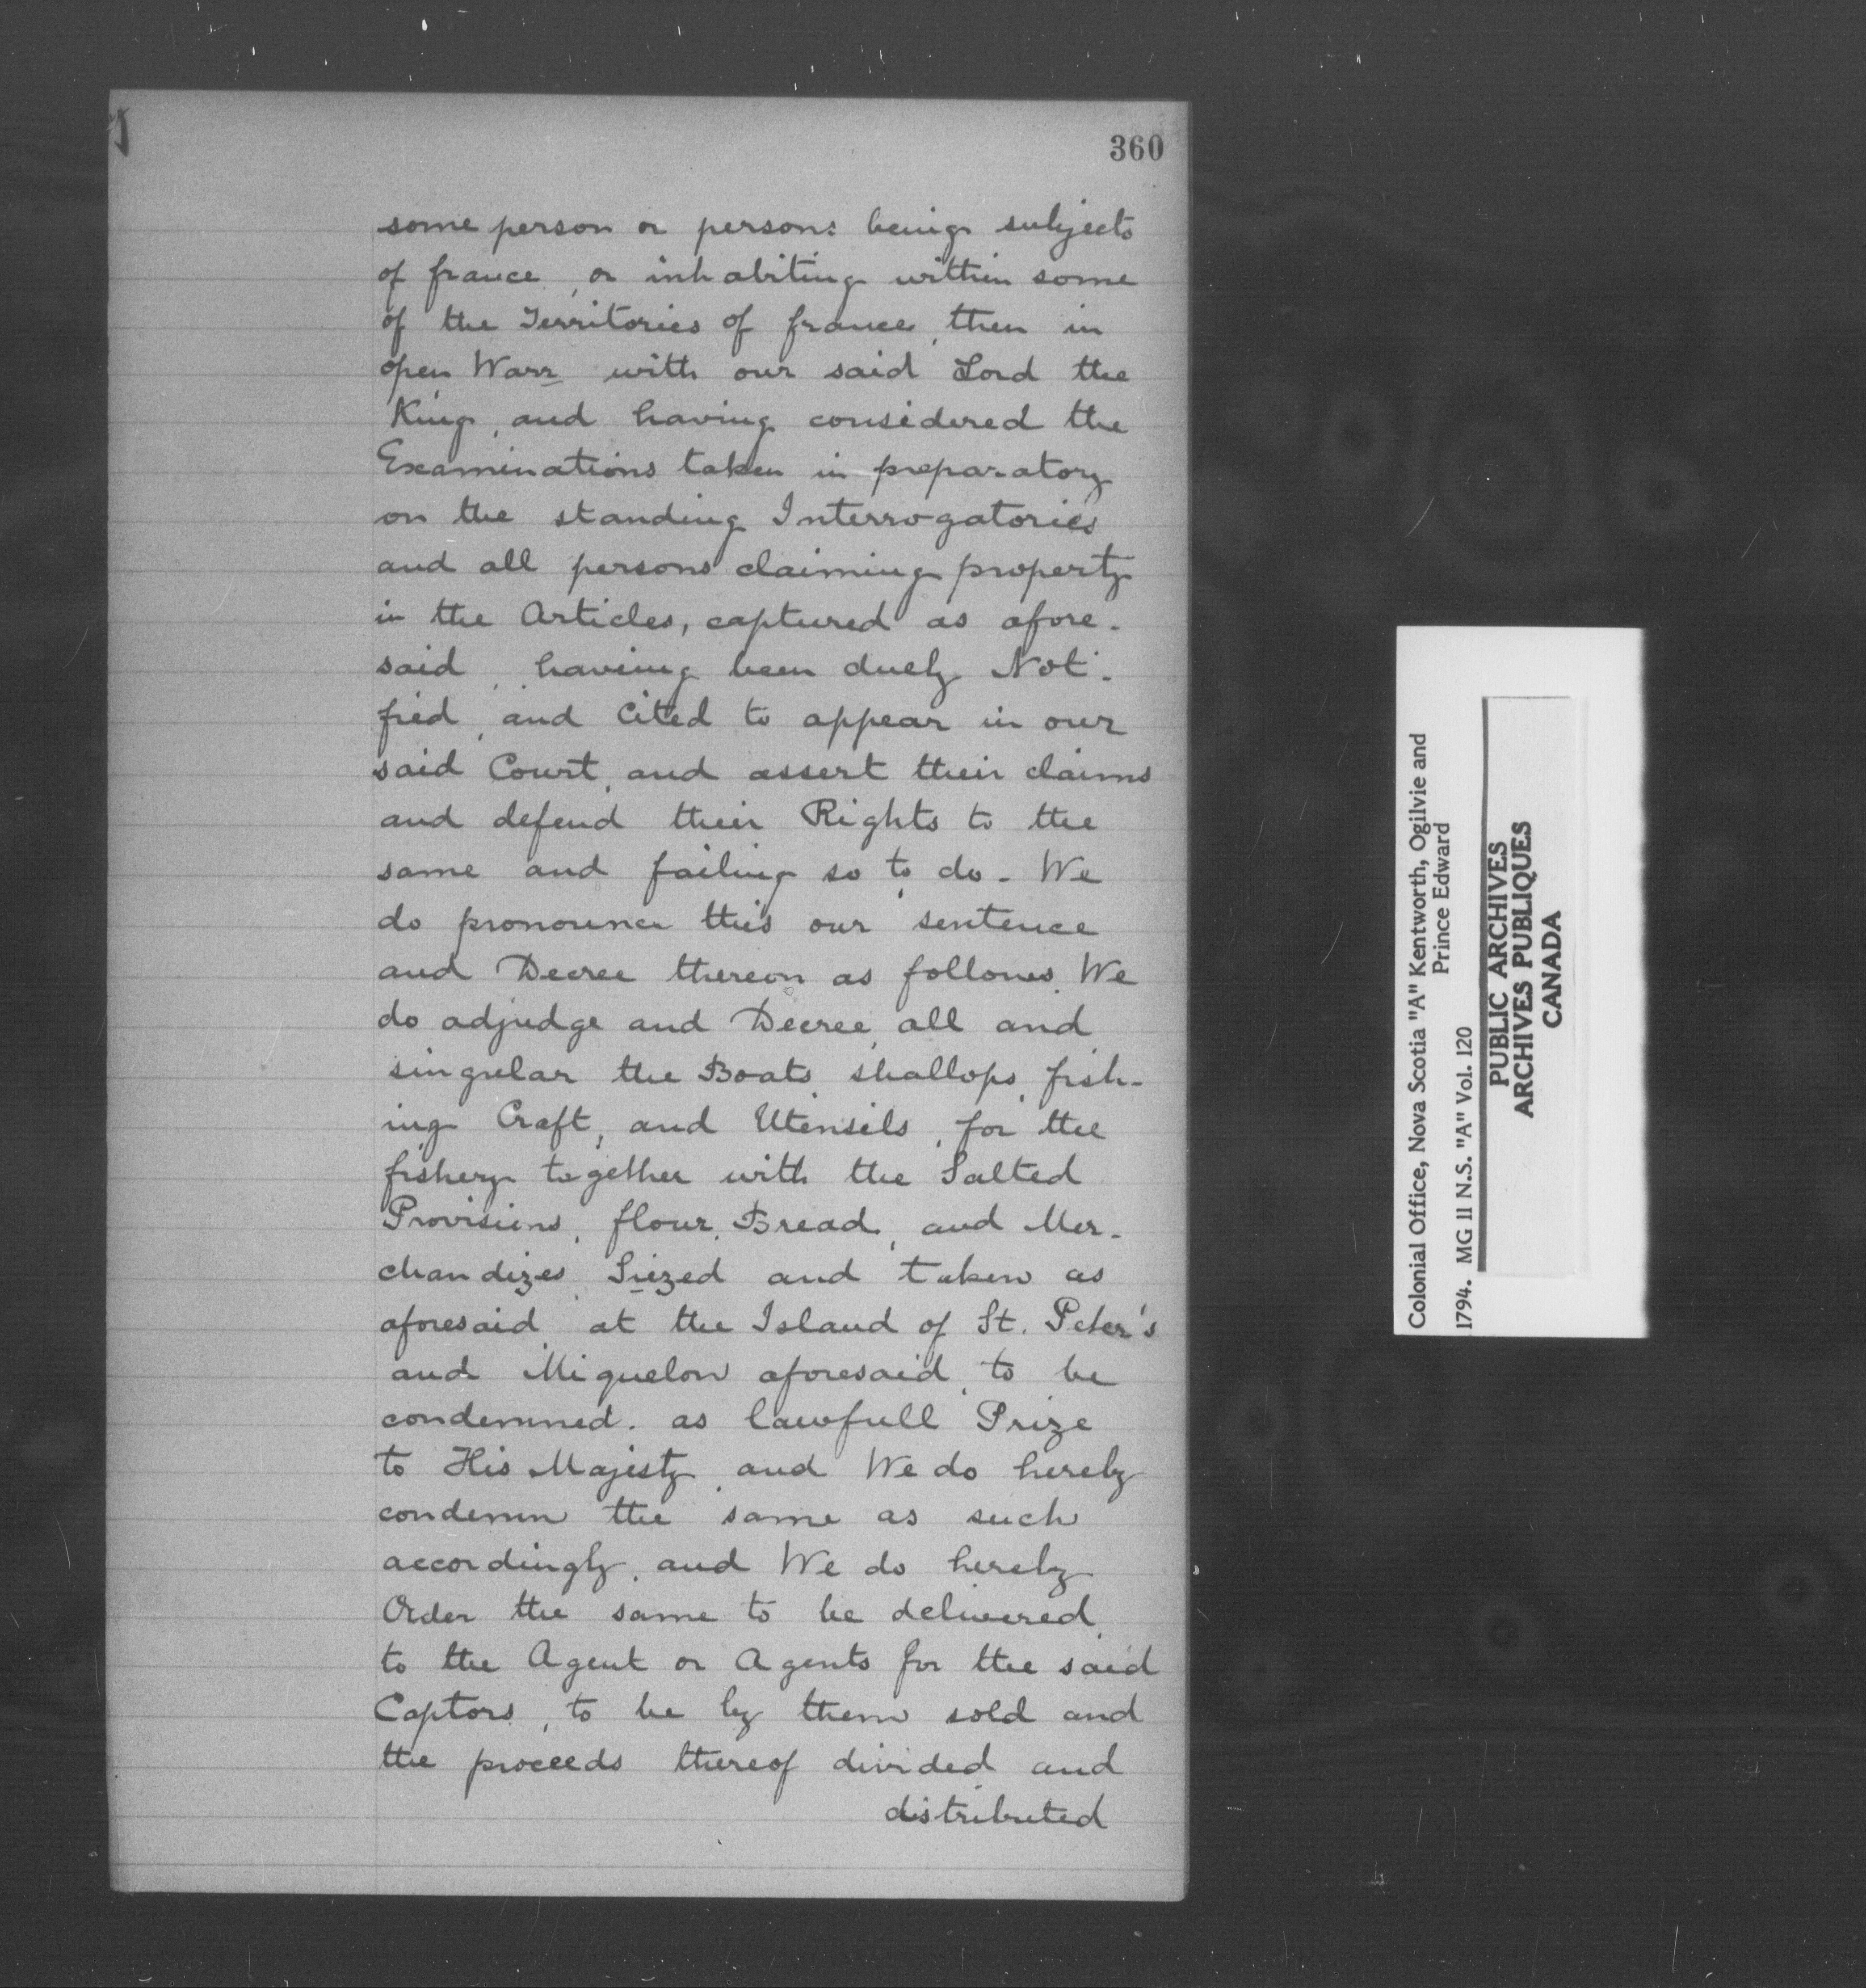 360
some person or persons being subjects
of france, or inhabiting within some
of the Territories of france, then in
open Warr with our said Lord the
King, and having considered the
Examinations taken in preparatory
on the standing Interrogatories
and all persons claiming property
in the Articles, captured as afore-
said, having been duely Noti-
fied, and Cited to appear in our
said Court, and assert their claims
and defend their Rights to the
same and failing so to do - We
do pronounce this our sentence
and Decree thereon as follows. We
do adjudge and Decree, all and
singular the Boats, shallops, fish-
ing Craft, and Utensils, for the
fishery together with the Salted
Provisions, flour, Bread, and Mer-
chandizes, Siezed and taken as
aforesaid, at the Island of St. Peter's
and Miquelon aforesaid, to be
condemned. as lawfull Prize
to His Majesty, and We do hereby
condemn the same as such
accordingly, and We do hereby
Order the same to be delivered,
to the Agent or Agents for the said
Captors, to be by them sold and
the proceeds thereof divided and
distributed
Colonial Office, Nova Scotia "A" Kentworth, Ogilvie and
Prince Edward
1794. MG 11 N.S. "A" Vol. 120
PUBLIC ARCHIVES
ARCHIVES PUBLIQUES
CANADA